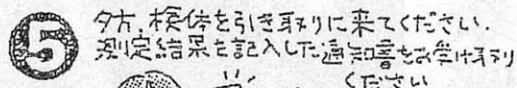 ⑤ 夕方、検体を引き取りに来てください.
測定結果を記入した通知書をお受け取り
ください